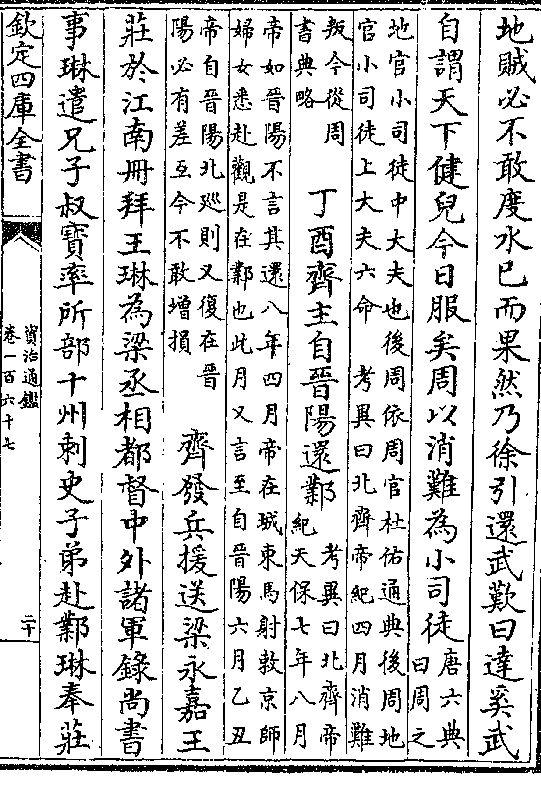 地賊必不敢度水已而果然乃徐引還武歎曰達奚武
自謂天下健兒今日服矣周以消難為小司徒唐六典曰周之
地官小司徒中大夫也後周依周官杜佑通典後周地
官小司徒上大夫六命 考異曰北齊帝紀四月消難
叛今從周書典略 丁酉齊主自晉陽還鄴考異曰北齊帝紀天保七年八月
帝如晉陽不言其還八年四月帝在城東馬射敕京師
婦女悉赴觀是在鄴也此月又言至自晉陽六月乙丑
帝自晉陽北廵則又復在晉陽必有差互今不敢增損 齊發兵援送梁永嘉王
莊於江南冊拜王琳為梁丞相都督中外諸軍錄尚書
事琳遣兄子叔寶率所部十州刺史子弟赴鄴琳奉莊
欽定四庫全書
資治通鑑
卷一百六十七
二十